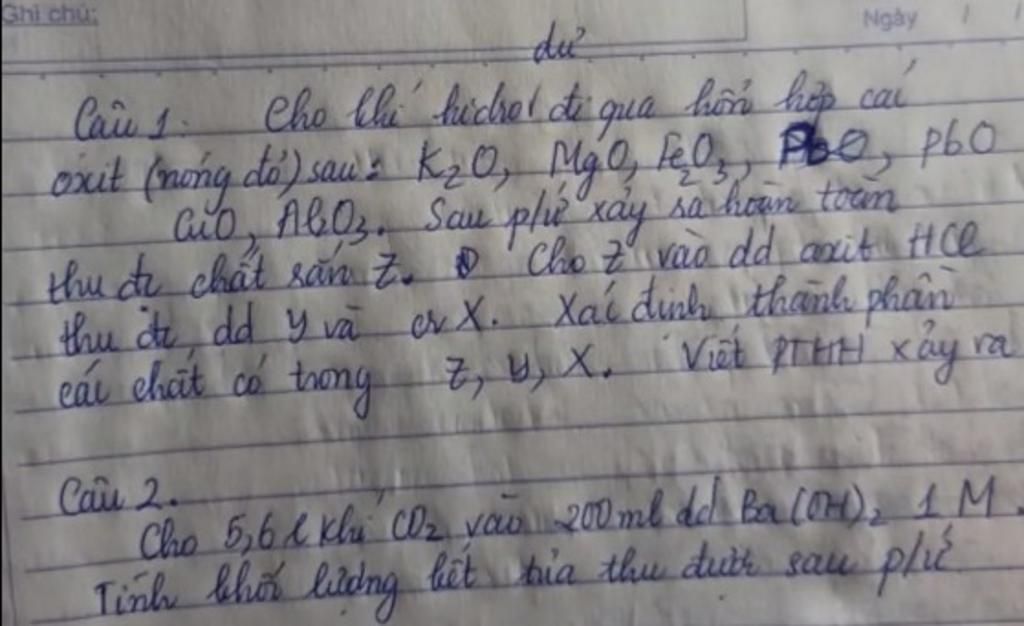 Ghi chú:
Ngày / /
dư
Câu 1. Cho khí hidro đi qua hỗn hợp các
oxit (nóng đỏ) sau: K₂O, MgO, Fe₂O₃, PbO, PbO
CuO, Al₂O₃. Sau p/ứ xảy ra hoàn toàn
thu đc chất rắn Z. Cho Z vào dd axit HCl
thu đc dd y và cr X. Xác định thành phần
các chất có trong Z, y, X. Viết PTHH xảy ra
Câu 2.
Cho 5,6 l khí CO₂ vào 200ml dd Ba(OH)₂ 1 M.
Tính khối lượng kết tủa thu được sau p/ứ